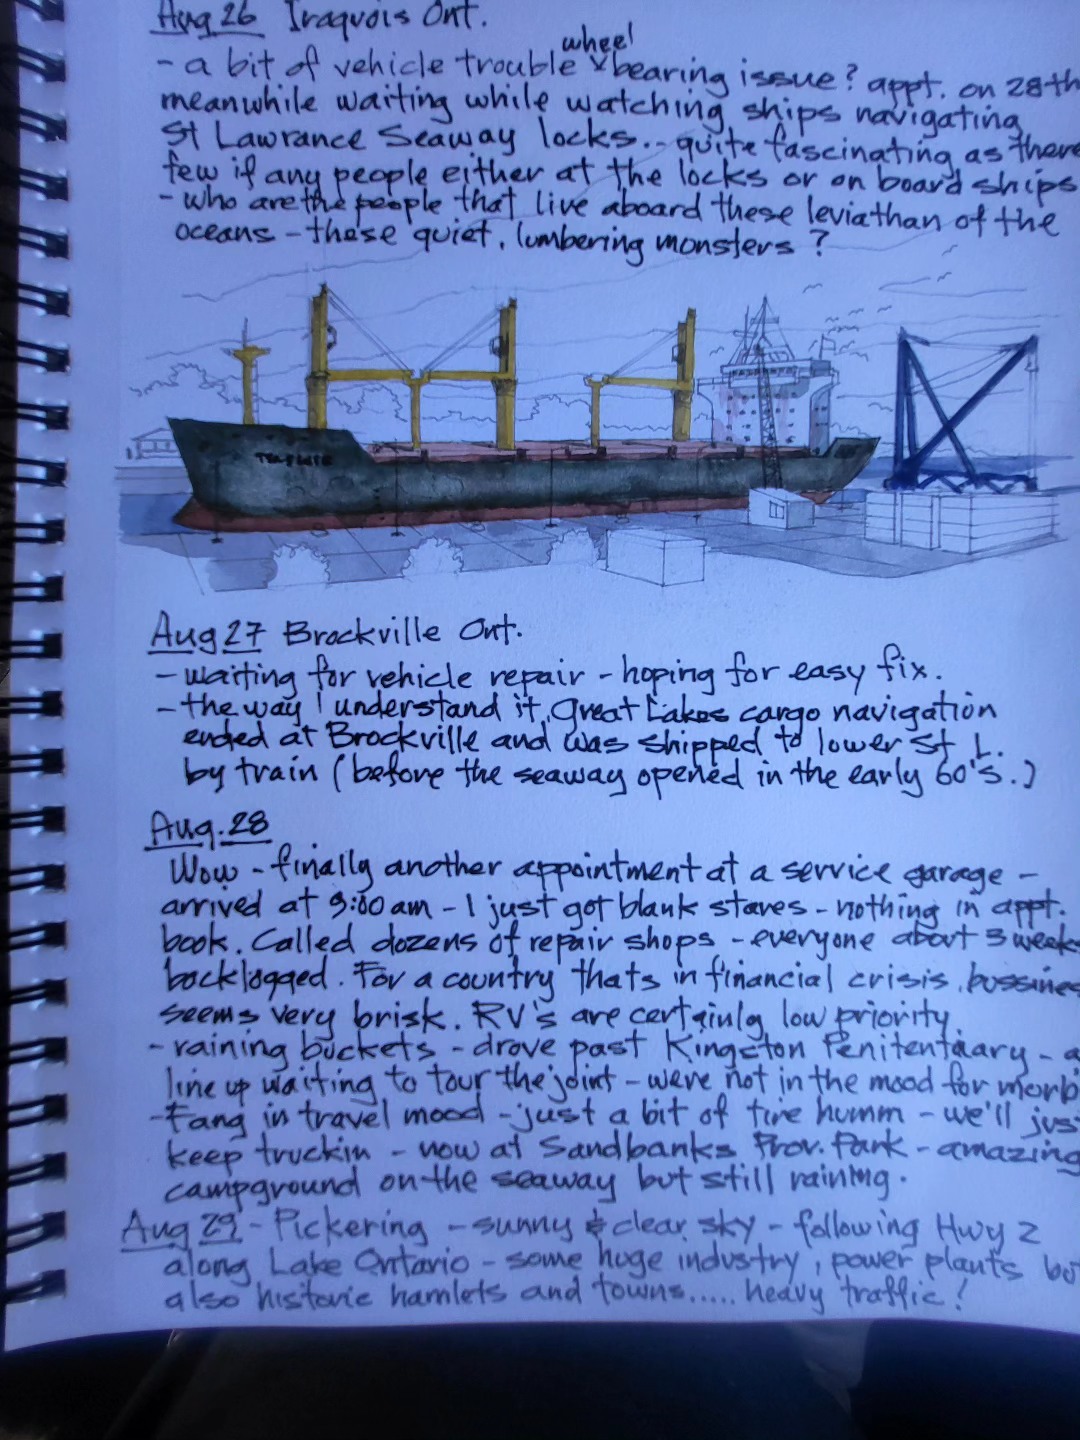 Aug 26 Iraquois Ont.
- a bit of vehicle trouble wheel bearing issue? appt. on 28th
meanwhile waiting while watching ships navigating
St Lawrance Seaway locks.. quite fascinating as there
few if any people either at the locks or on board ships
- who are the people that live aboard these leviathan of the
oceans - these quiet, lumbering monsters?
Aug 27 Brockville Ont.
- waiting for vehicle repair - hoping for easy fix.
- the way I understand it, Great Lakes cargo navigation
ended at Brockville and was shipped to lower St L.
by train (before the seaway opened in the early 60's.)
Aug. 28
Wow - finally another appointment at a service garage -
arrived at 9:00 am - I just got blank stares - nothing in appt.
book. Called dozens of repair shops - everyone about 3 weeks
backlogged. For a country thats in financial crisis, bussines
seems very brisk. RV's are certainly low priority.
- raining buckets - drove past Kingston Penitentiary - a
line up waiting to tour the joint - were not in the mood for morb
- Fang in travel mood - just a bit of tire humm - we'll jus
keep truckin - now at Sandbanks Prov. Park - amazing
campground on the seaway but still raining.
Aug 29 - Pickering - sunny & clear sky - following Hwy 2
along Lake Ontario - some huge industry, power plants but
also historic hamlets and towns..... heavy traffic!